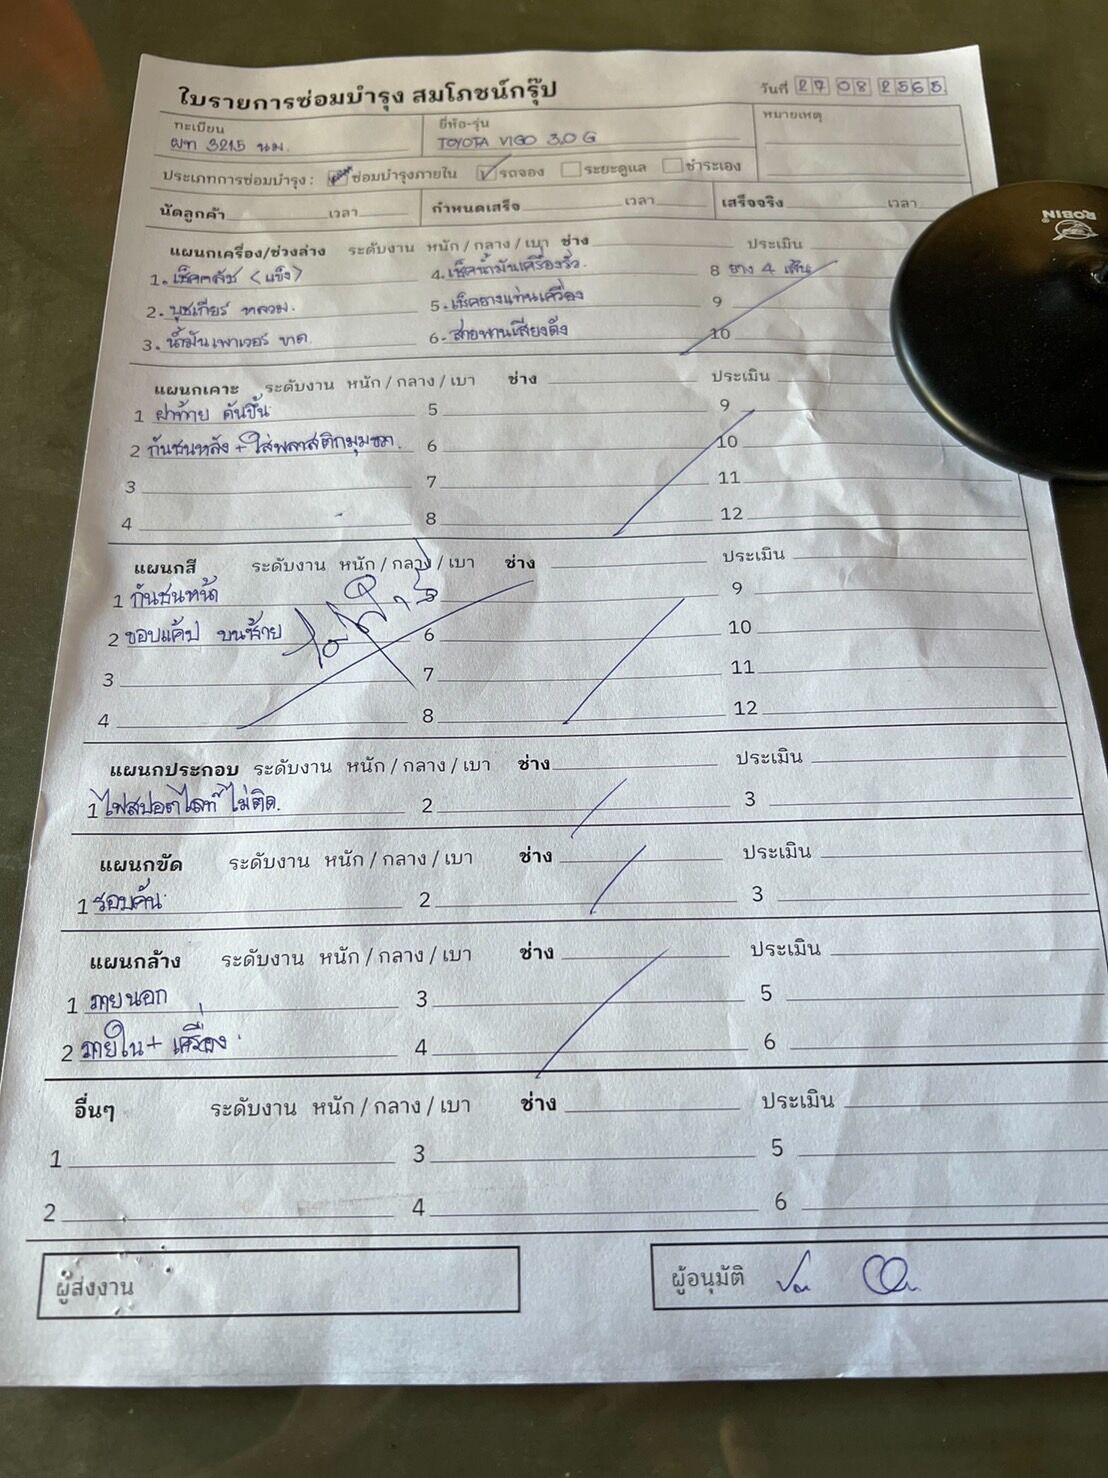 ใบรายการซ่อมบำรุง สมโภชน์กรุ๊ป
วันที่ 27 08 2565
ทะเบียน ยี่ห้อ-รุ่น หมายเหตุ
ผท 3215 นม. TOYOTA VIGO 3.0 G
ประเภทการซ่อมบำรุง : ซ่อมบำรุงภายใน รถจอง ระยะดูแล ชำระเอง
นัดลูกค้า เวลา กำหนดเสร็จ เวลา เสร็จจริง เวลา
แผนกเครื่อง/ช่วงล่าง ระดับงาน หนัก / กลาง / เบา ช่าง ประเมิน
1. เช็คคลัช (แข็ง) 4. เช็คน้ำมันเครื่องรั่ว. 8 ยาง 4 เส้น
2. บูชเกียร์ หลวม. 5. เช็คยางแท่นเครื่อง 9
3. น้ำมันเพาเวอร์ ขาด 6. สายพานเสียงดัง 10
แผนกเคาะ ระดับงาน หนัก / กลาง / เบา ช่าง ประเมิน
1 ฝาท้าย คันขึ้น 5 9
2 กันชนหลัง + ใส่พลาสติกมุมขวา. 6 10
3 7 11
4 8 12
แผนกสี ระดับงาน หนัก / กลาง / เบา ช่าง ประเมิน
1 กันชนหน้า 5 9
2 ขอบแค็ป บนซ้าย 6 10
3 7 11
4 8 12
แผนกประกอบ ระดับงาน หนัก / กลาง / เบา ช่าง ประเมิน
1 ไฟสปอตไลท์ ไม่ติด. 2 3
แผนกขัด ระดับงาน หนัก / กลาง / เบา ช่าง ประเมิน
1 รอบคัน 2 3
แผนกล้าง ระดับงาน หนัก / กลาง / เบา ช่าง ประเมิน
1 ภายนอก 3 5
2 ภายใน + เครื่อง 4 6
อื่นๆ ระดับงาน หนัก / กลาง / เบา ช่าง ประเมิน
1 3 5
2 4 6
ผู้ส่งงาน ผู้อนุมัติ
ROBIN